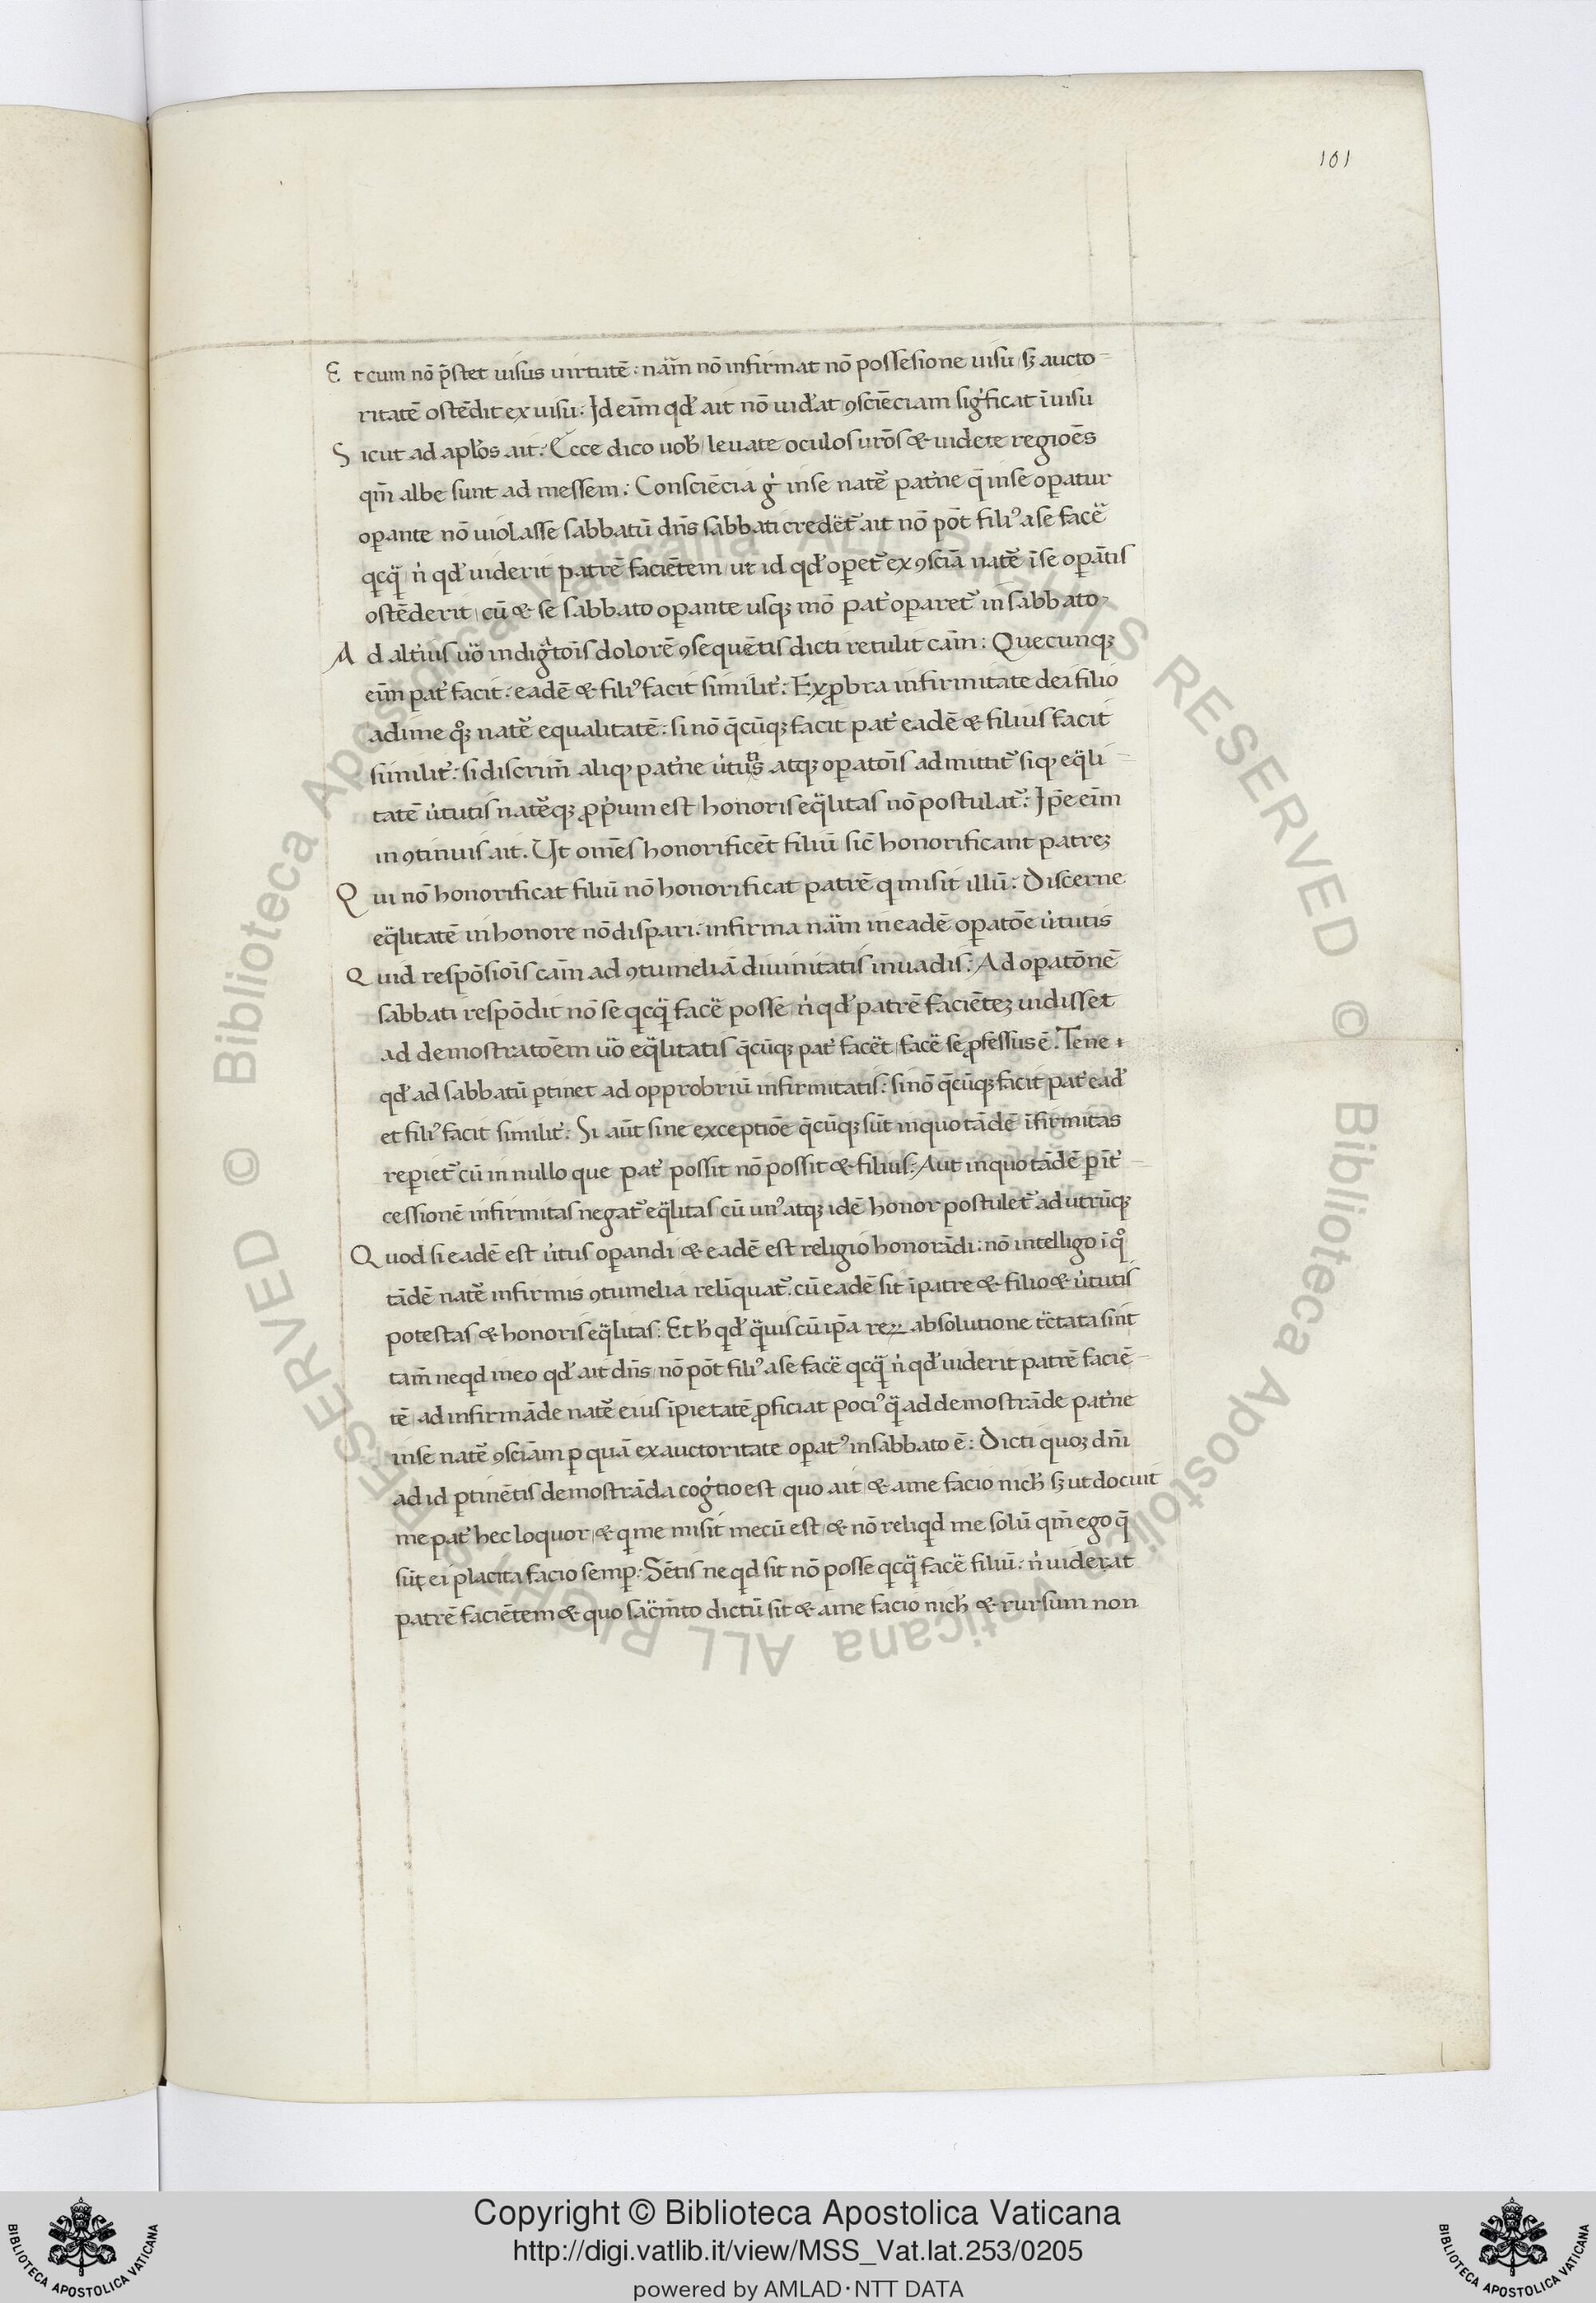 101
Et cum nō p̄stet uisus uirtutē: nãm nō infirmat nō possesione uisu sꝫ aucto-
ritatē ostēdit ex uisu: Id eīm qd̛ ait nō uid̛at ꝯsciēciam sigͥficat ī uisu
Sicut ad apl̛os ait: Ecce dico uob̛ leuate oculos ur̄os & uidete regiōes
qm̄ albe sunt ad messem: Consciēcia gͥ in se nat̃e pat̛ne q̄ in se oꝑatur
oꝑante nō uiolasse sabbatū dn̄s sabbati credẽt᷑ ait nō pōt filiꝰ a se facẽ
qcq̃ n̛ qd̛ uiderit patrē faciētem ut id qd̛ oꝑet᷑ ex ꝯsciā nat̃e ī se oꝑātis
ostēderit cū & se sabbato oꝑante usqꝫ mō pat̛ oꝑaret᷑ in sabbato
Ad alt̛ius uõ indigͣtōis dolorē ꝯsequētis dicti retulit cām: Quecunqꝫ
eīm pat̛ facit: eadē & filiꝰ facit similit̛: Exꝓbra infirmitate dei filio
adime qͦꝫ nat̃e equalitatē: si nō q̄cūqꝫ facit pat̛ eadē & filius facit
similit̛: si discrim̄ aliqͥ pat̛ne ưtutis atqꝫ oꝑatōis admittit᷑ siqͥ eq̃li-
tatē ưtutis nat̃eqꝫ ꝓp̛um est honoris eq̃litas nō postulat᷑: Ip̄e eīm
in ꝯtinuis ait. Ut om̄es honorificēt filiū sic̄ honorificant patreꝫ
Qui nō honorificat filiū nō honorificat patrē q misit illū: Discerne
eq̃litatē in honore nō dispari: infirma nãm in eadē oꝑatōe ưtutis
Quid respōsiōis cām ad ꝯtumeliā diuinitatis inuadis: Ad oꝑatōnē
sabbati respōdit nō se qcq̃ facẽ posse n̛ qd̛ patrē faciēteꝫ uidisset
ad demostratōem uõ eq̃litatis q̄cūqꝫ pat̛ facẽt facẽ se ꝓfessus ē. Tene
qd̛ ad sabbatū ꝑtinet ad opprobriū infirmitatis: si nō q̄cūqꝫ facit pat̛ ead̛
et filiꝰ facit similit̛: Si aūt sine exceptiōe q̄cūqꝫ sūt in quo tādē īfirmitas
reꝑiet᷑ cū in nullo que pat̛ possit nō possit & filius: Aut in quo tādē ꝑ īt̛
cessionē infirmitas negat᷑ eq̃litas cū unꝰ atqꝫ idē honor postulet᷑ ad utrūqꝫ
Quod si eadē est ưtus oꝑandi & eadē est religio honorādi: nō intelligo ī qͦ
tādē nat̃e infirmis ꝯtumelia relīquat᷑. cū eadē sit ī patre & filio & ưtutis
potestas & honoris eq̃litas: Et h̛ qd̛ q̃uis cū ip̄a reꝝ absolutione tc̃tata sint
tam̄ ne qd in eo qd̛ ait dn̄s nō pōt filiꝰ a se facẽ qcq̃ n̛ qd̛ uiderit patrē faciē-
tē ad infirmāde nat̃e eius īpietatē ꝓficiat pociꝰ q̃ ad demostrāde pat̛ne
in se nat̃e ꝯsciām ꝑ quā ex auctoritate oꝑatꝰ in sabbato ē: Dicti quoꝫ dn̄i
ad id ꝑtinētis demostrāda cogͥtio est quo ait & a me facio nich̛ sꝫ ut docuit
me pat̛ hec loquor & q me misit mecū est & nō reliqd me solū qm̄ ego q̄
sūt ei placita facio semꝑ: Sētis ne qd sit nō posse qcq̃ facẽ filiū: n̛ uiderat
patrē faciētem & quo sac̃m̄to dictū sit & a me facio nich̛ & rursum non
Copyright © Biblioteca Apostolica Vaticana
http://digi.vatlib.it/view/MSS_Vat.lat.253/0205
powered by AMLAD·NTT DATA